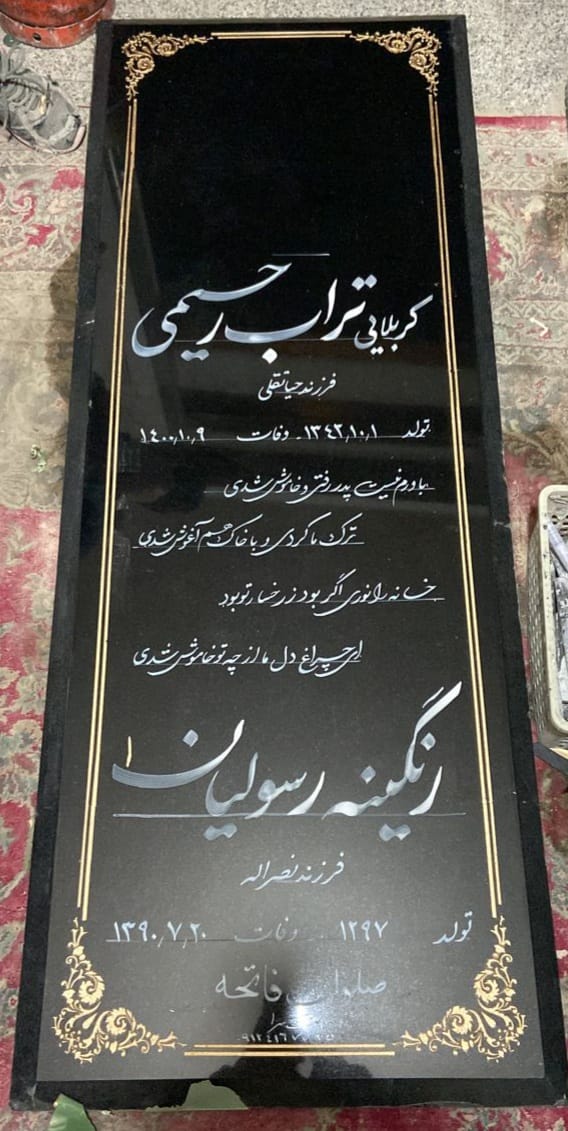 کربلایی تراب رحیمی
فرزند حیاتقلی
تولد ۱۳۴۲,۱۰,۱ - وفات ۱۴۰۰,۱۰,۹
باورم نیست پدر رفتی و خاموش شدی
ترک ما کردی و با خاک هم آغوش شدی
خانه را نوری اگر بود ز رخسار تو بود
ای چراغ دل ما از چه تو خاموش شدی
زنگینه رسولیان
فرزند نصراله
تولد ۱۲۹۷ وفات ۱۳۹۰,۷,۲۰
صلوات فاتحه